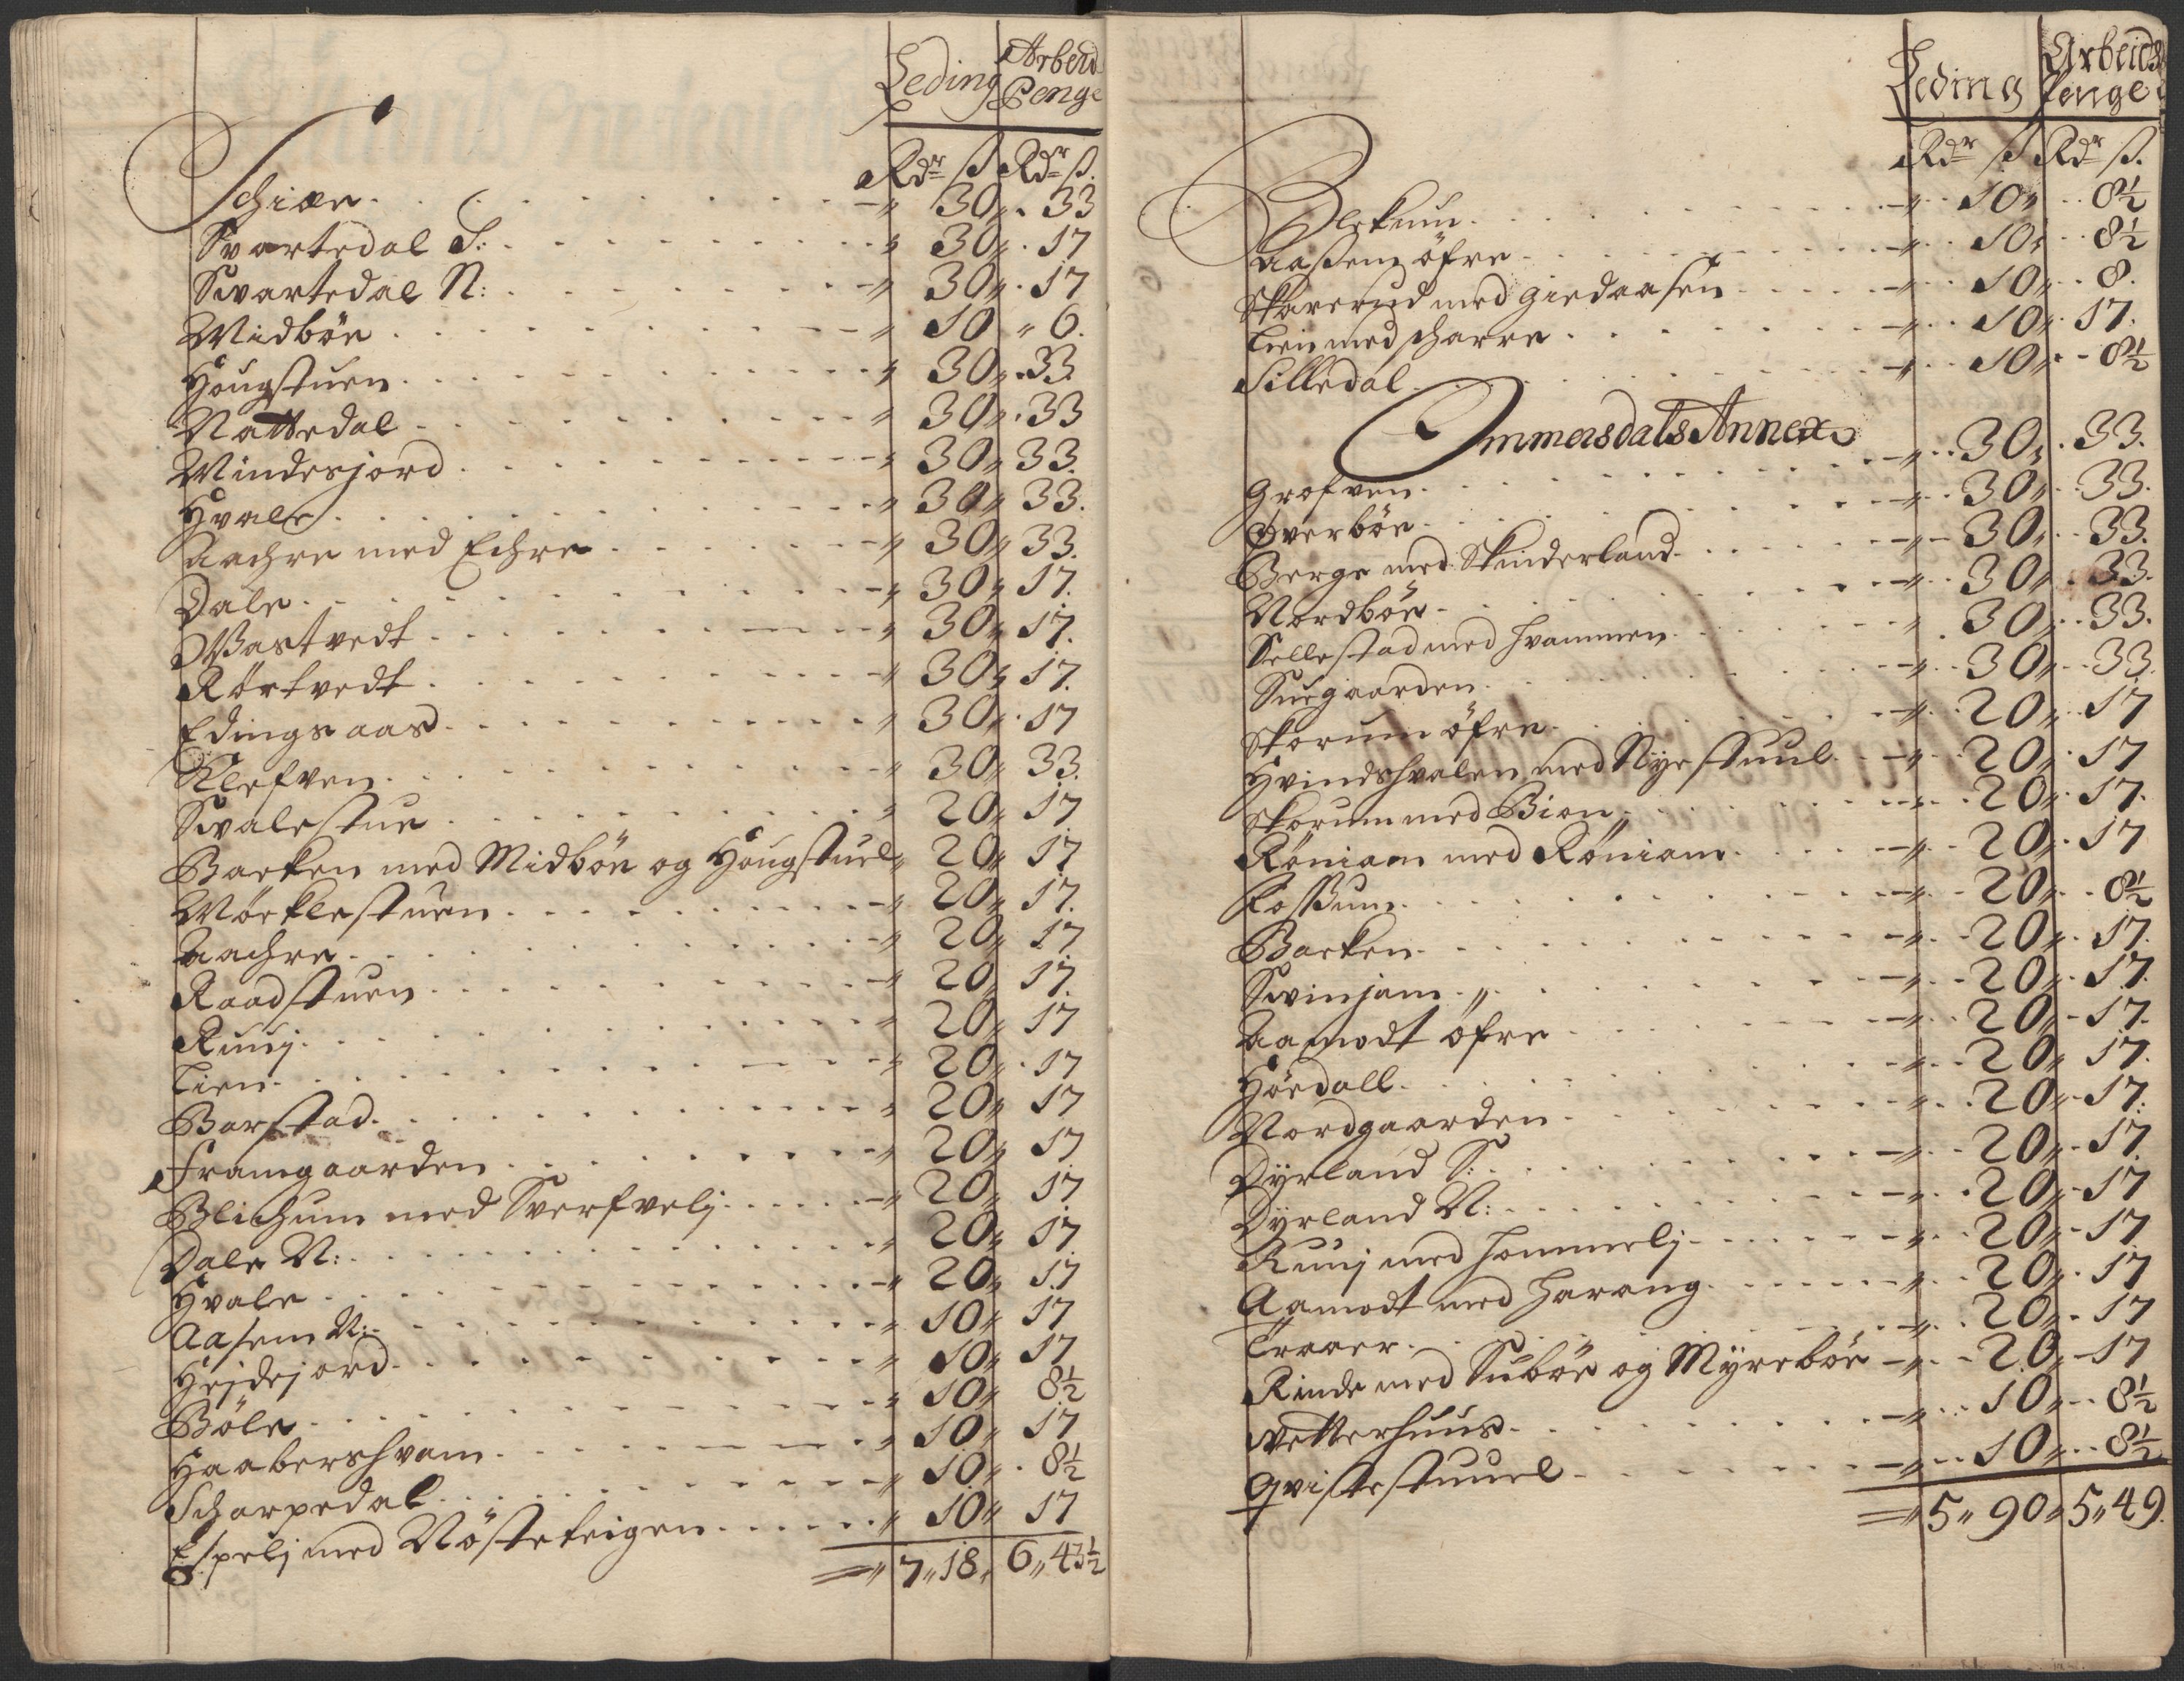 Leding Arbeids
Penge
Rdr ß Rdr ß.
Schiøn . . . " 30 " 33
Svartedal S: . . . " 30 " 17
Svartedal N: . . . " 30 " 17
Midbøn . . . " 10 " 6.
Hougstuen . . . " 30 " 33
Nattedal . . . " 30 " 33
Mindesjord . . . " 30 " 33.
Hvale . . . " 30 " 33.
Aachre med Echre . . . " 30 " 33.
Dale . . . " 30 " 17.
Vastvedt . . . " 30 " 17.
Rørtvedt . . . " 30 " 17.
Edingsaas . . . " 30 " 17
Klefven . . . " 30 " 33.
Svalestue . . . " 20 " 17
Barken med Midbøn og Hougstuel " 20 " 17
Mørklestuen . . . " 20 " 17.
Aachre . . . " 20 " 17
Raadstuen . . . " 20 " 17.
Ruuj . . . " 20 " 17
Lien . . . " 20 " 17
Barstad . . . " 20 " 17
Framgaarden . . . " 20 " 17
Blichum med Sverfvelj . . . " 20 " 17
Dale N: . . . " 20 " 17
Hvale . . . " 20 " 17
Aasem N: . . . " 10 " 17
Hejdejord . . . " 10 " 17
Bøle . . . " 10 " 8½
Haabershvam . . . " 10 " 17
Scharpedal . . . " 10 " 8½
Espelj med Nøsteteigen . . . " 10 " 17
= " 7 " 18 " 6 " 43½
Leding Arbeids
Penge
Rdr ß Rdr ß.
Blekum . . . " 10 " 8½
Aassem øfre . . . " 10 " 8½
Skarerud med Giedaasen . . . " 10 " 8.
Lien med scharre . . . " 10 " 17.
Silledal . . . " 10 " 8½
Ommersdals Annex
Grofven . . . " 30 " 33.
Øverbøe . . . " 30 " 33.
Berge med Skinderland . . . " 30 " 33.
Nordbøe . . . " 30 " 33.
Sellestad med hvammen . . . " 30 " 33.
Suegaarden . . . " 30 " 33.
Skorum øfre . . . " 20 " 17
Hvindshvalen med Nyestuul . . . " 20 " 17
Skorum med Bion . . . " 20 " 17.
Røniam med Røniam . . . " 20 " 17
Fossum . . . " 20 " 8½
Barken . . . " 20 " 17.
Svinjam . . . " 20 " 17.
Aamodt øfre . . . " 20 " 17.
Høedall . . . " 20 " 17.
Nordgaarden . . . " 20 " 17.
Dyrland S: . . . " 20 " 17.
Dyrland N: . . . " 20 " 17
Ruuj med hommelj . . . " 20 " 17
Aamodt med harang . . . " 20 " 17
Traaer . . . " 20 " 17
Rinde med Subøe og Myrebøe " 20 " 17
Vetterhuus . . . " 10 " 8½
Qvistestuuel . . . " 10 " 8½
= " 5 " 90 " 5 " 49.